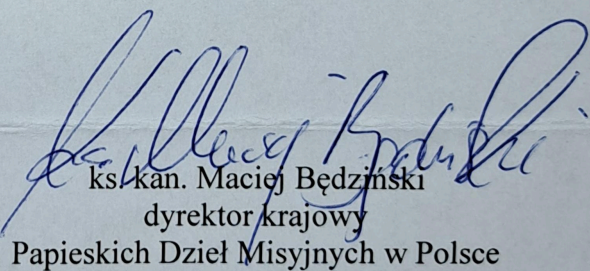 ks. Maciej Będziński
ks. kan. Maciej Będziński
dyrektor krajowy
Papieskich Dzieł Misyjnych w Polsce